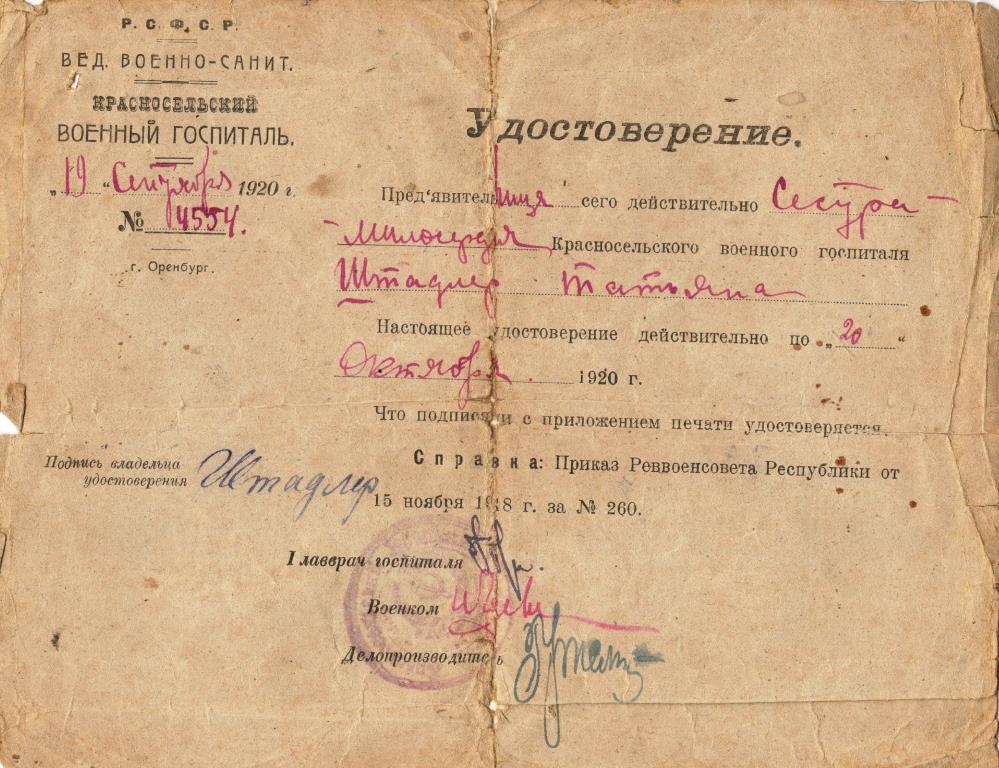 Р. С. Ф. С. Р.
ВЕД. ВОЕННО-САНИТ.
КРАСНОСЕЛЬСКИЙ
ВОЕННЫЙ ГОСПИТАЛЬ.
„19“ Сентября 1920 г.
№ 4554.
г. Оренбург.
Удостоверение.
Пред'явительница сего действительно Сестра
милосердия Красносельского военного госпиталя
Штадлер Татьяна
Настоящее удостоверение действительно по „20“
Октября 1920 г.
Что подписями с приложением печати удостоверяется.
Справка: Приказ Реввоенсовета Республики от
15 ноября 1918 г. за № 260.
Подпись владельца
удостоверения Штадлер
Главврач госпиталя
Военком
Делопроизводитель